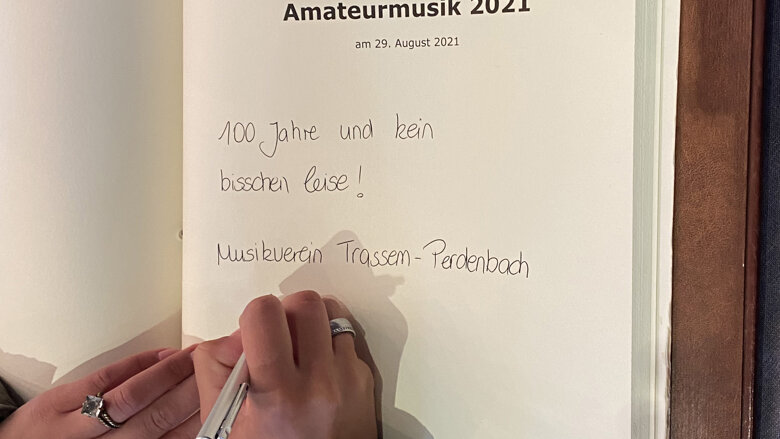 Amateurmusik 2021
am 29. August 2021
100 Jahre und kein
bisschen leise!
Musikverein Trassem-Perdenbach